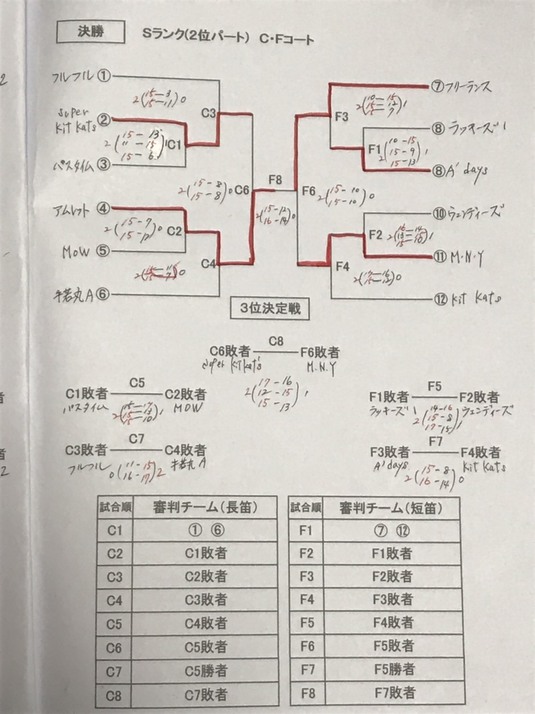 決勝 Sランク(2位パート) C・Fコート
フルフル ① ⑦ フリーランス
2(15-9 0
C3
2(10-15 1
15-7
F3
Super
Kit Kats ② ⑧ ラッキーズ1
2(15-13 1
11-15
15-6
C1
F1
2(10-15 1
15-9
15-13
パスタイム ③ ⑧ A'days
2(15-8 0
15-8
C6 F8 F6
2(15-10 0
15-10
2(15-12 0
16-14
アムレット ④ ⑩ ウェンディーズ
2(15-7 0
15-12
C2
F2
MOW ⑤ ⑪ M.N.Y
C4 F4
手若丸A ⑥ ⑫ Kit Kats
3位決定戦
C8
C6敗者 F6敗者
Super Kit Kats M.N.Y
2(17-16 1
12-15
15-13
C5 F5
C1敗者 C2敗者 F1敗者 F2敗者
パスタイム MOW ラッキーズ1 ウェンディーズ
2(14-16 1
15-8
17-15
C7 F7
C3敗者 C4敗者 F3敗者 F4敗者
フルフル 手若丸A A'days Kit Kats
0(11-15 2
16-17
2(15-8 0
16-14
試合順 審判チーム(長笛) 試合順 審判チーム(短笛)
C1 ① ⑥ F1 ⑦ ⑫
C2 C1敗者 F2 F1敗者
C3 C2敗者 F3 F2敗者
C4 C3敗者 F4 F3敗者
C5 C4敗者 F5 F4敗者
C6 C5敗者 F6 F5敗者
C7 C5勝者 F7 F5勝者
C8 C7敗者 F8 F7敗者